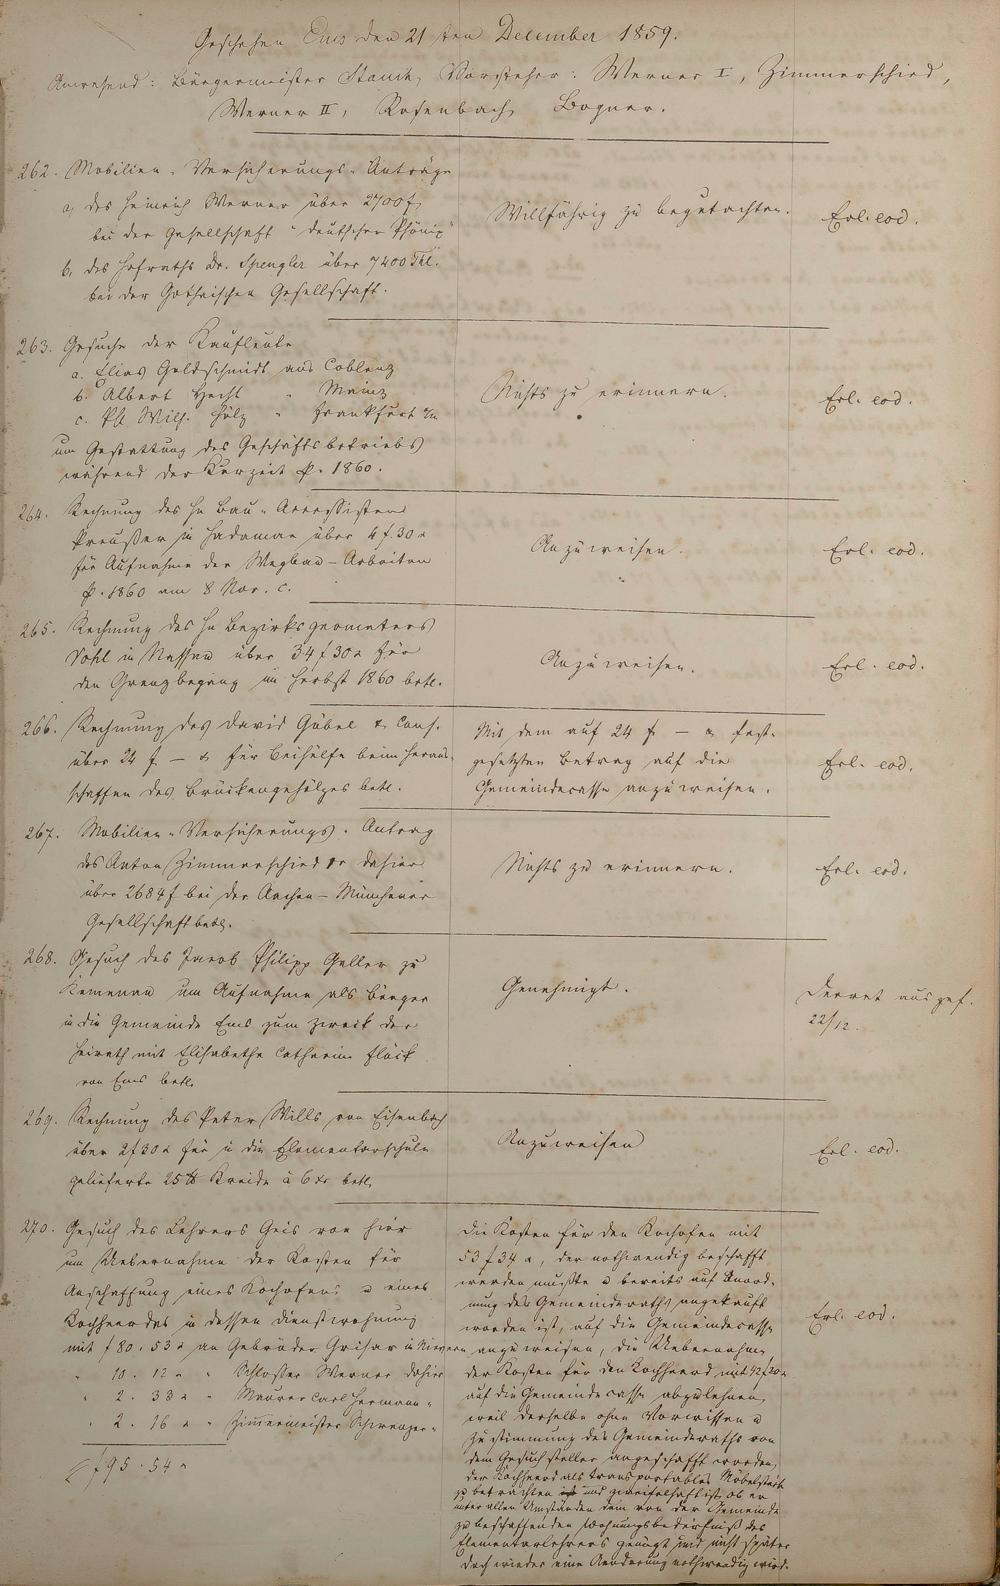 Geschehen Ems den 21ten December 1859.
Anwesend: Bürgermeister Stamm, Vorsteher: Werner I, Zimmerschied,
Werner II, Rosenbach, Bogner.
262. Mobilien-Versicherungs-Anträge
a, des Heinrich Werner über 2700 f,
bei der Gesellschaft "deutscher Phönix"
b, des Hofraths Dr. Spengler über 7400 Thl.
bei der Gothaischen Gesellschaft.
Willfährig zu begutachten.
Erl. eod.
263. Gesuche der Kaufleute
a. Elias Goldschmidt aus Coblenz
b. Albert Hecht " Mainz
c. Ph. Wilh. Hülz " Frankfurt a/m
um Gestattung des Geschäftsbetriebs
während der Kurzeit p. 1860.
Nichts zu erinnern.
Erl. eod.
264. Rechnung des Hn Bau-Accessisten
Preußer in Hadamar über 4 f. 30 x
für Aufnahme der Wegbau-Arbeiten
p. 1860 am 8 Nov. c.
Anzuweisen.
Erl. eod.
265. Rechnung des Hn Bezirksgeometers
Vohl in Nassau über 34 f 30 x für
den Grenzbegang im Herbst 1860 betl.
Anzuweisen.
Erl. eod.
266. Rechnung des David Göbel & Cons.
über 24 f — x für Beihülfe beim Heraus-
schaffen des Brückengehölzes betl.
Mit dem auf 24 f — x fest-
gesetzten Betrag auf die
Gemeindecasse anzuweisen.
Erl. eod.
267. Mobilien-Versicherungs-Antrag
des Anton Zimmerschied dahier
über 2684 f bei der Aachen-Münchener
Gesellschaft betl.
Nichts zu erinnern.
Erl. eod.
268. Gesuch des Jacob Philipp Geller zu
Kemenau um Aufnahme als Bürger
in die Gemeinde Ems zum Zweck der
Heirath mit Elisabethe Catharine Flöck
von Ems betl.
Genehmigt.
Decret ausgef.
22/12.
269. Rechnung des Peter Wills von Eisenbach
über 2 f 30 x für in die Elementarschule
gelieferte 25 ℔ Kreide à 6 xr betl.
Anzuweisen
Erl. eod.
270. Gesuch des Lehrers Geis von hier
um Uebernahme der Kosten für
Anschaffung eines Kochofens u eines
Kochheerdes in dessen Dienstwohnung
mit f 80. 53 x an Gebrüder Grisar in Nievern
" 10. 12 " " Schlosser Werner dahier
" 2. 33 " " Maurer Carl Hermann "
" 2. 16 " " Zimmermeister Schwenzer "
f 95. 54 x
Die Kosten für den Kochofen mit
53 f 34 x, der nothwendig beschafft
werden mußte u bereits auf Anord-
nung des Gemeinderaths angekauft
worden ist, auf die Gemeindecasse
anzuweisen, die Uebernahme
der Kosten für den Kochheerd mit 42 f 20 x
auf die Gemeindecasse abzulehnen,
weil derselbe ohne Vorwissen u
Zustimmung des Gemeinderaths von
dem Gesuchsteller angeschafft worden,
der Kochheerd als transportables Möbelstück
zu betrachten und zweifelhaft ist, ob er
unter allen Umständen dem von der Gemeinde
zu beschaffenden Wohnungsbedürfniß des
Elementarlehrers genügt und nicht später
doch wieder eine Aenderung nothwendig wird.
Erl. eod.